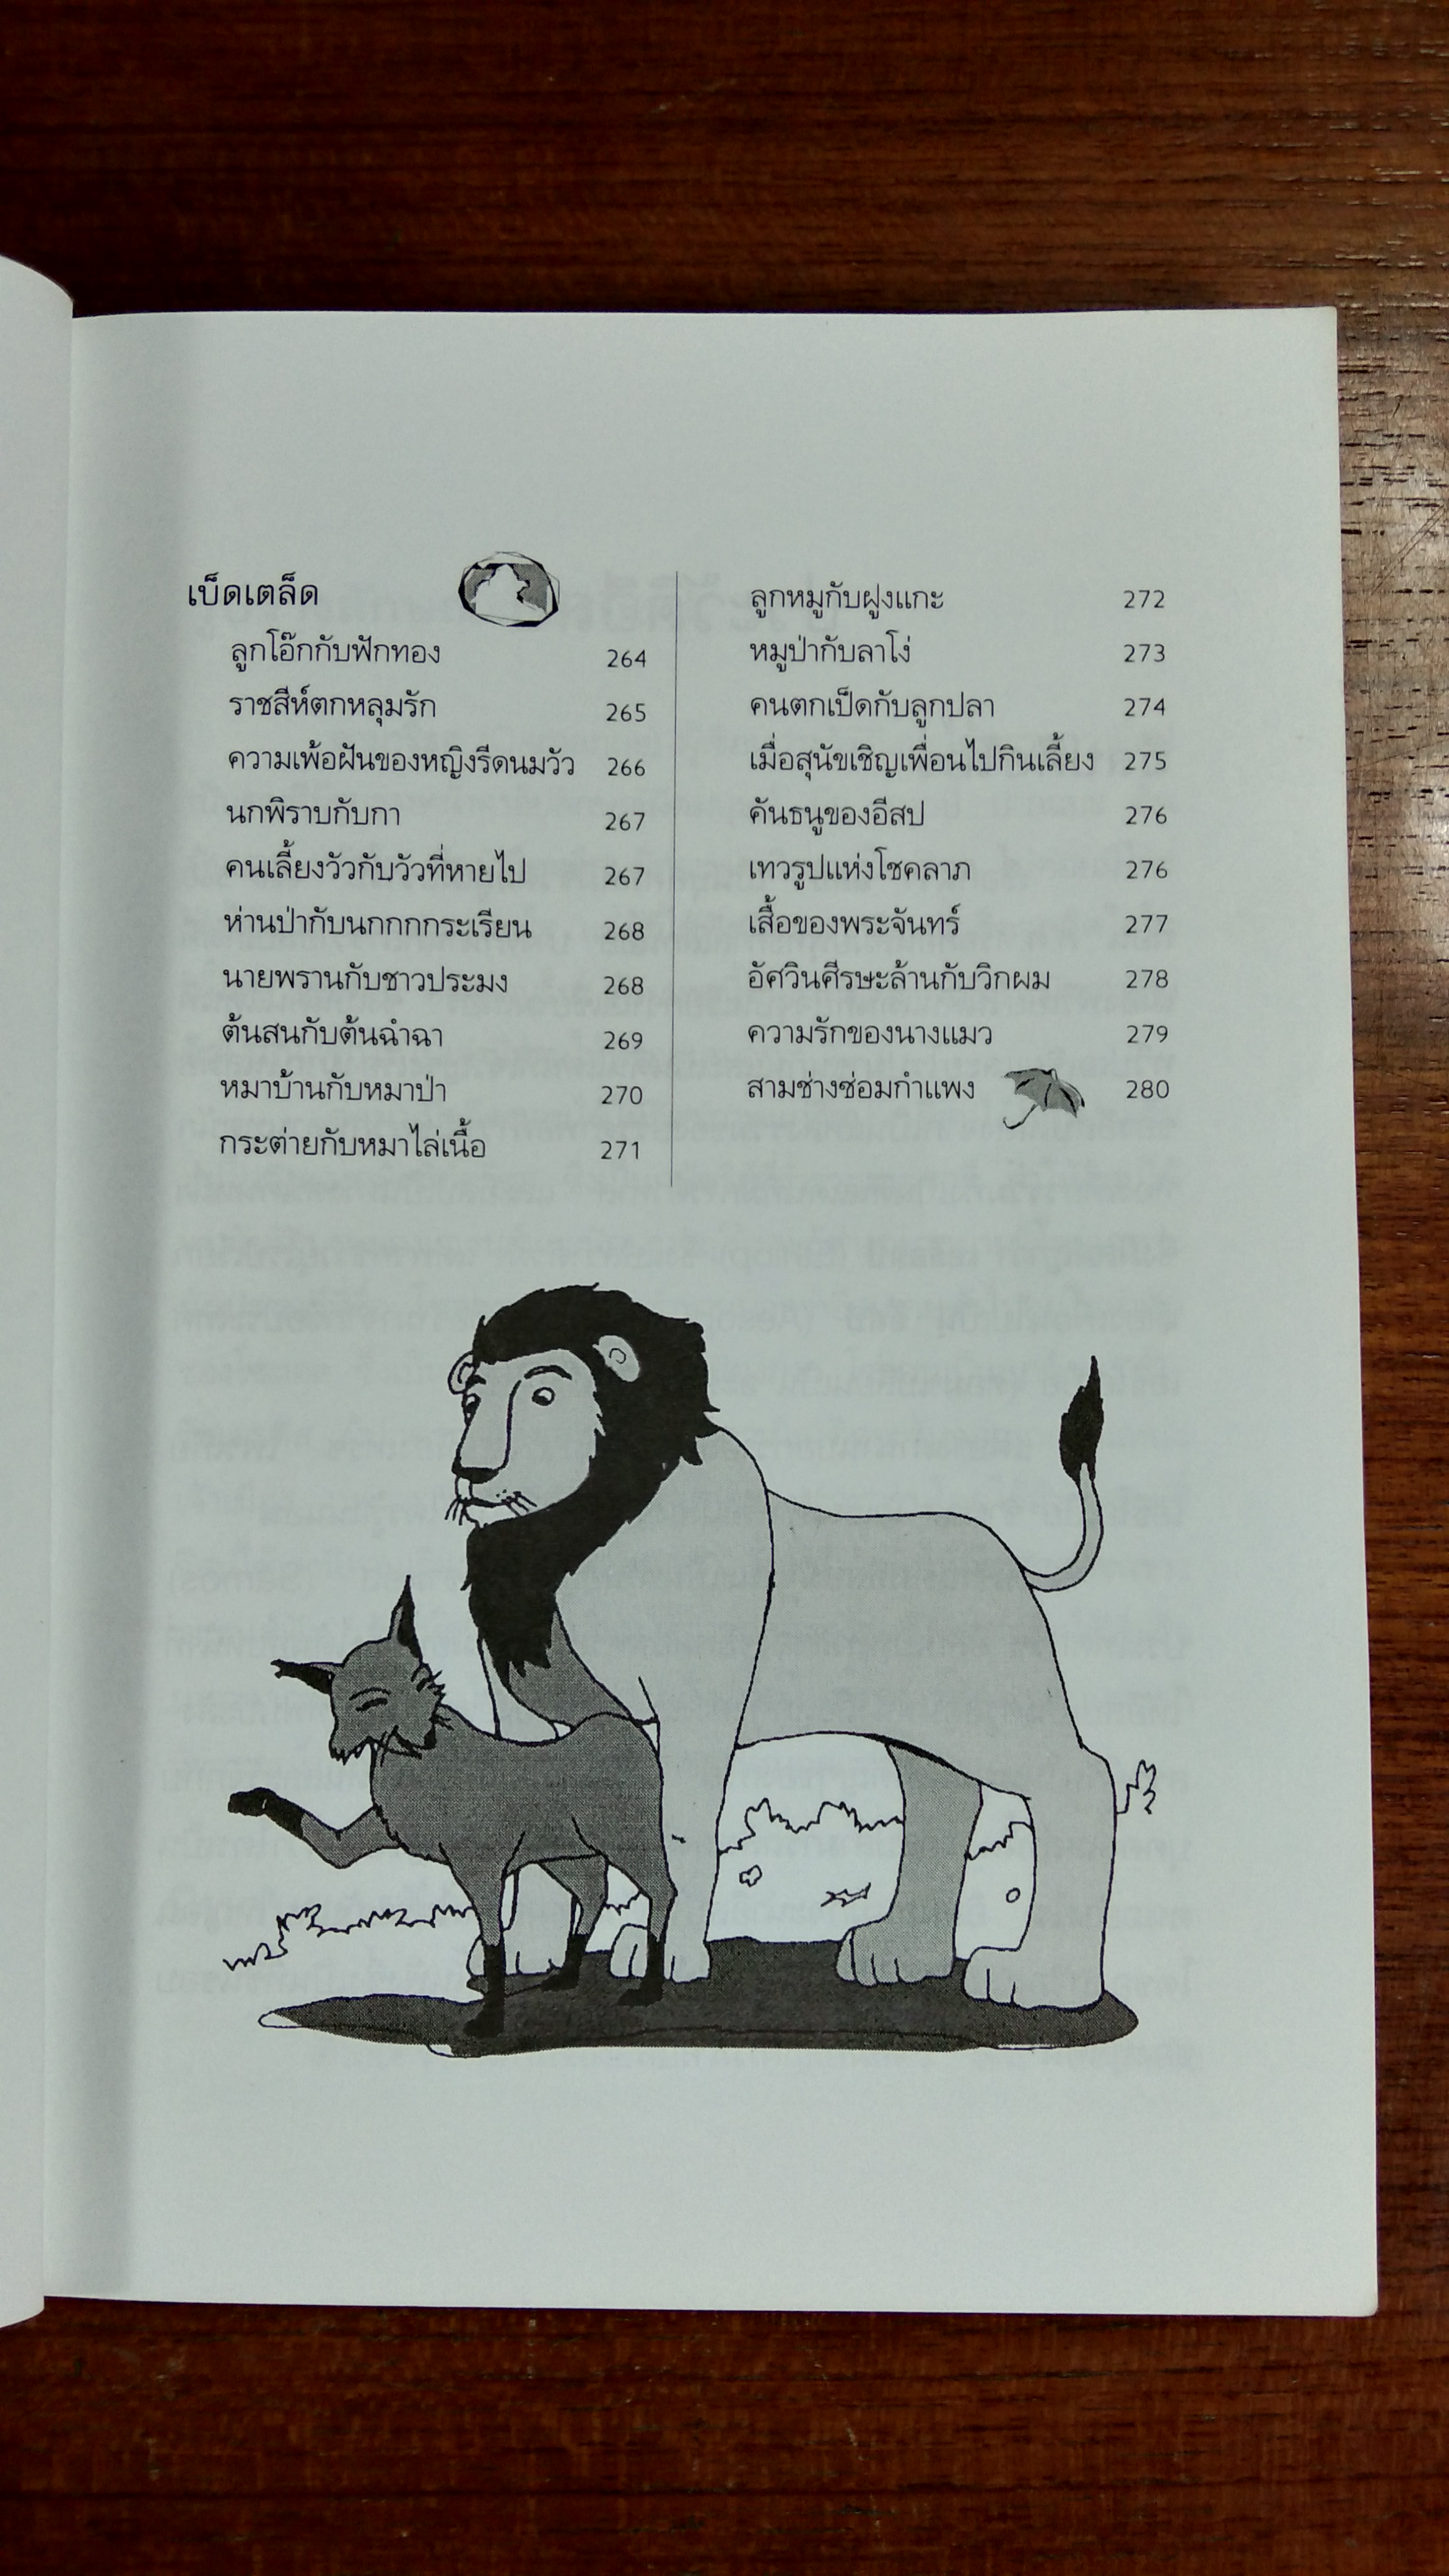 เบ็ดเตล็ด
ลูกโอ๊กกับฟักทอง 264
ราชสีห์ตกหลุมรัก 265
ความเพ้อฝันของหญิงรีดนมวัว 266
นกพิราบกับกา 267
คนเลี้ยงวัวกับวัวที่หายไป 267
ห่านป่ากับนกกกกระเรียน 268
นายพรานกับชาวประมง 268
ต้นสนกับต้นฉำฉา 269
หมาบ้านกับหมาป่า 270
กระต่ายกับหมาไล่เนื้อ 271
ลูกหมูกับฝูงแกะ 272
หมูป่ากับลาโง่ 273
คนตกเป็ดกับลูกปลา 274
เมื่อสุนัขเชิญเพื่อนไปกินเลี้ยง 275
คันธนูของอีสป 276
เทวรูปแห่งโชคลาภ 276
เสื้อของพระจันทร์ 277
อัศวินศีรษะล้านกับวิกผม 278
ความรักของนางแมว 279
สามช่างซ่อมกำแพง 280